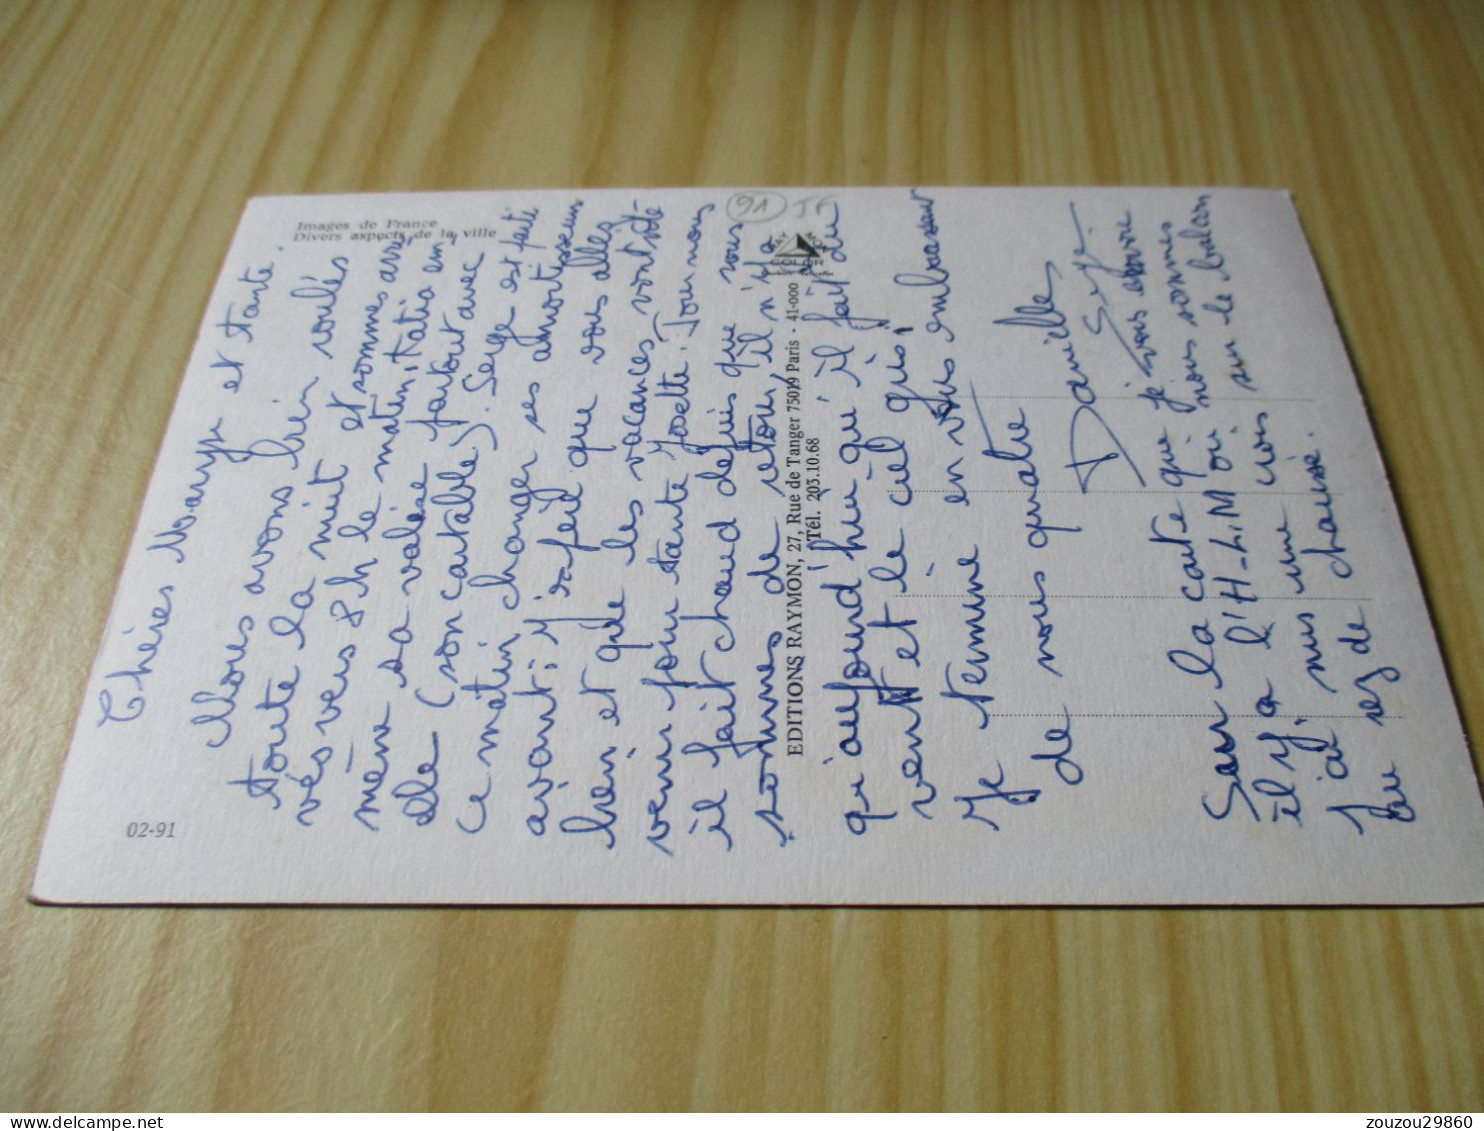 Images de France
Divers aspects de la ville
02-91
91 JF
RAY MON
COLOR
EDITIONS RAYMON, 27, Rue de Tanger 75019 Paris - 41-000
Tél. 203.10.68
Chères Maryse et tante.
Nous avons bien roulés
toute la nuit et sommes arri
vés vers 8h le matin, Katia em
mène sa valise partout avec
elle (son cartable). Serge est parti
ce matin changer ses amortisseurs
avant; j'espère que vous allez
bien et que les vacances vont vite
venir pour tante Yvette. Pour nous
il fait chaud depuis que nous
sommes de retour, il n'y a
qu'aujourd'hui qu'il fait du
vent et le ciel gris,
Je termine en vous embrassant
de nous quatre
Danielle
Serge.
Sur la carte que je vous envoie
il y a l'H-L-M où nous sommes
j'ai mis une croix sur le balcon
au rez de chaussé.
zouzou29860